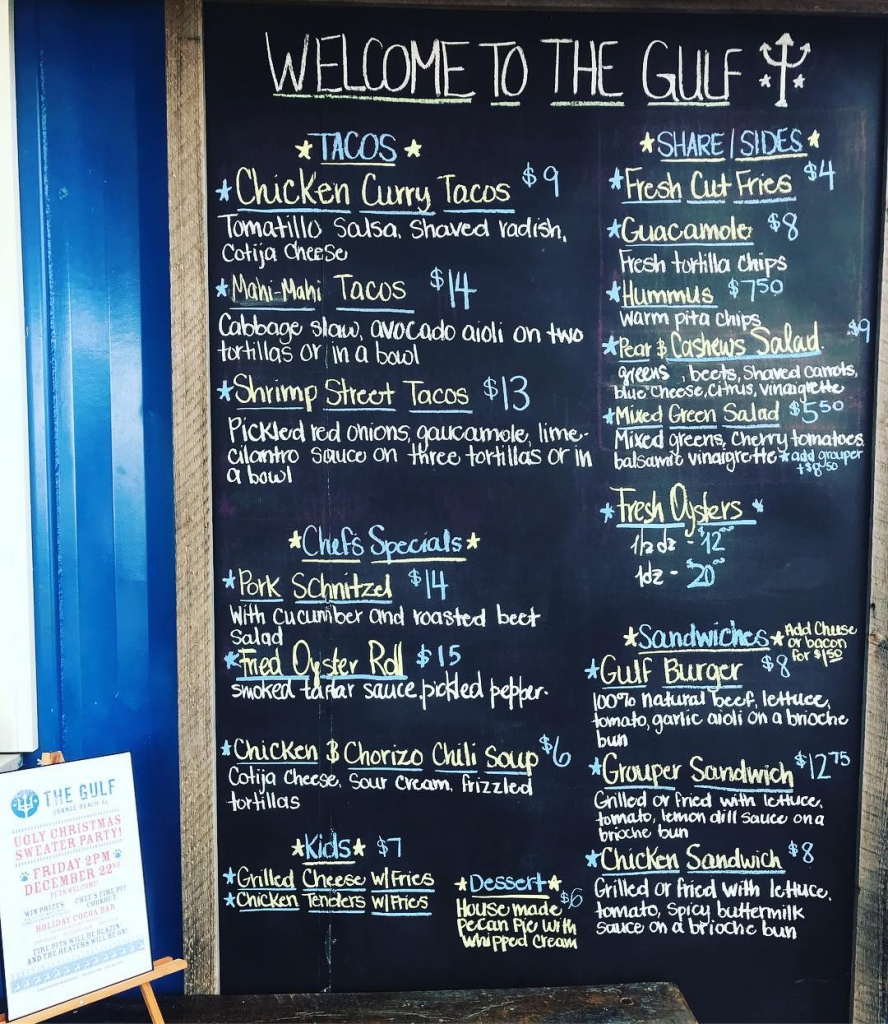 WELCOME TO THE GULF
TACOS
Chicken Curry Tacos $9
Tomatillo Salsa, Shaved radish,
Cotija Cheese
Mahi-Mahi Tacos $14
Cabbage slaw, avocado aioli on two
tortillas or in a bowl
Shrimp Street Tacos $13
Pickled red onions, gaucamole, lime-
cilantro sauce on three tortillas or in
a bowl
Chef's Specials
Pork Schnitzel $14
With Cucumber and roasted beet
Salad
Fried Oyster Roll $15
smoked tartar sauce, pickled pepper.
Chicken & Chorizo Chili Soup $6
Cotija Cheese, Sour Cream, frizzled
tortillas
Kids $7
Grilled Cheese w/Fries
Chicken Tenders w/Fries
Dessert $6
House made
Pecan Pie with
Whipped Cream
SHARE/SIDES
Fresh Cut Fries $4
Guacamole $8
Fresh tortilla Chips
Hummus $7.50
warm pita chips
Pear & Cashews Salad $9
greens, beets, Shaved Carrots,
blue cheese, citrus, vinaigrette
Mixed Green Salad $5.50
Mixed greens, Cherry tomatoes
balsamic vinaigrette *add grouper
+$8.50
Fresh Oysters
1/2 dz - $12.00
1dz - $20.00
Sandwiches Add Cheese
or bacon
for $1.50
Gulf Burger $8
100% natural beef, lettuce,
tomato, garlic aioli on a brioche
bun
Grouper Sandwich $12.75
Grilled or fried with lettuce,
tomato, lemon dill sauce on a
brioche bun
Chicken Sandwich $8
Grilled or fried with lettuce,
tomato, spicy buttermilk
sauce on a brioche bun
THE GULF
ORANGE BEACH, AL
UGLY CHRISTMAS
SWEATER PARTY!
FRIDAY 2PM
DECEMBER 22ND
PETS WELCOME!
WIN PRIZES
CHEF'S FIRE PIT
COOKOUT
HOLIDAY COCOA BAR
FIRE PITS WILL BE BLAZIN
AND THE HEATERS WILL BE ON!